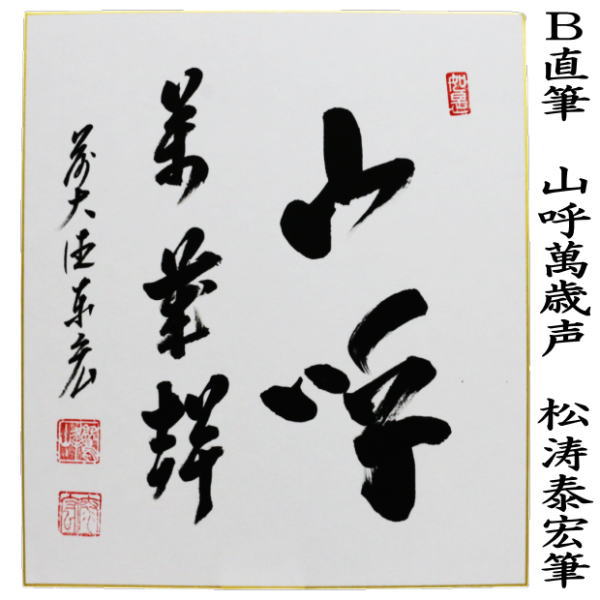 B直筆　山呼萬歳声　松涛泰宏筆
山呼
萬歳聲
前大徳泰宏